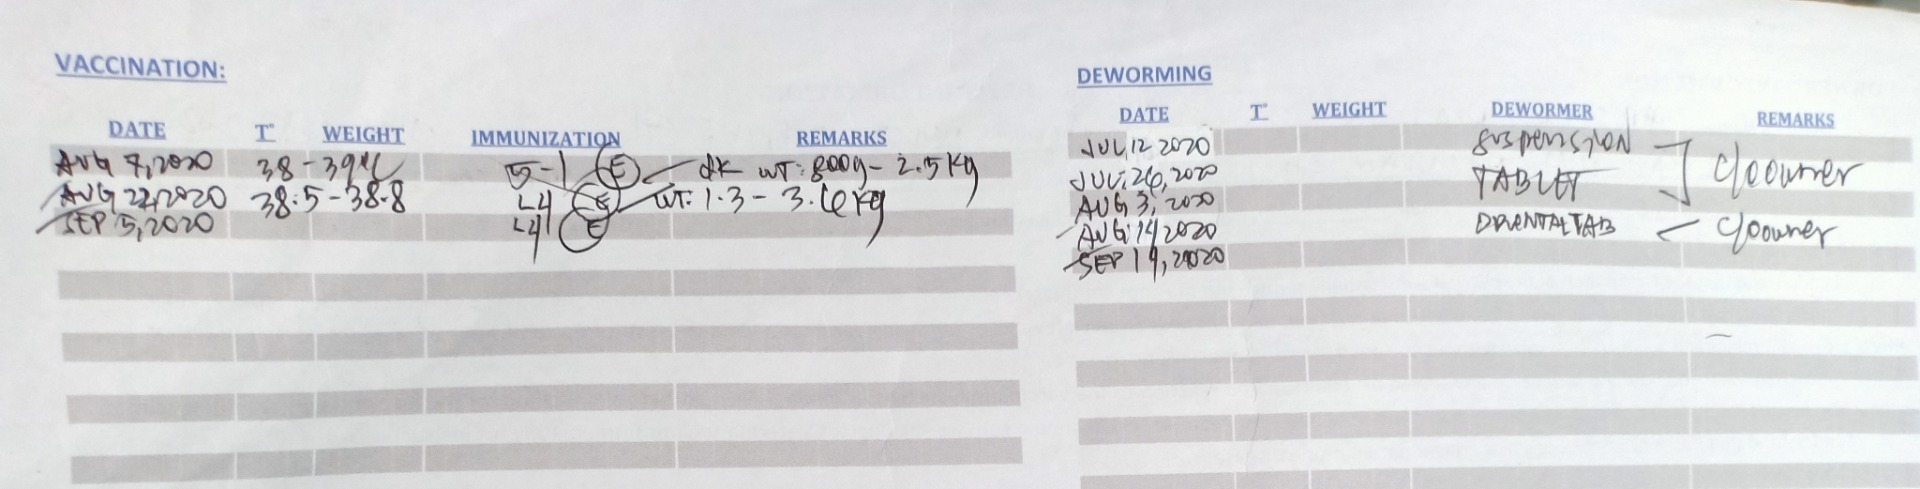 VACCINATION:
DATE T° WEIGHT IMMUNIZATION REMARKS
AUG 7, 2020 38-39°C 5-1 E wt: 800g - 2.5 kg
AUG 22, 2020 38.5-38.8 L4 E WT: 1.3 - 3.6 kg
SEP 5, 2020 L4 E
DEWORMING
DATE T° WEIGHT DEWORMER REMARKS
JUL 12 2020 SUSPENSION
JUL 26, 2020 TABLET c/o owner
AUG 3, 2020
AUG 14 2020 DRENTAL TAB c/o owner
SEP 19, 2020